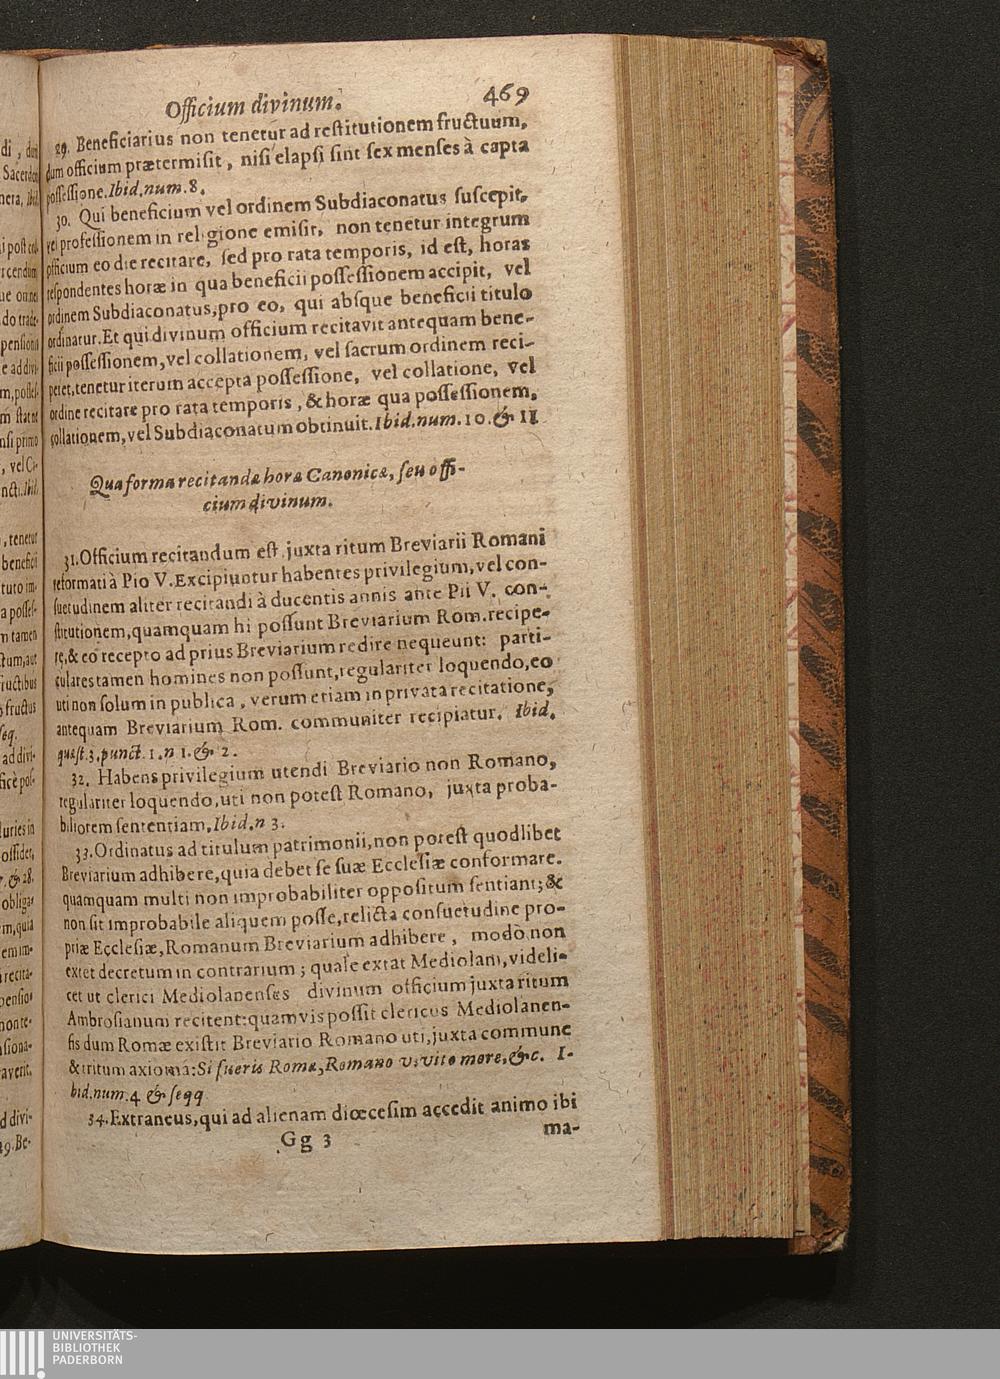 Officium divinum. 469
29. Beneficiarius non tenetur ad reſtitutionem fructuum,
dum officium prætermiſit, niſi elapſi ſint ſex menſes à capta
poſſeſſione. Ibid. num. 8.
30. Qui beneficium vel ordinem Subdiaconatus ſuſcepit,
vel profeſſionem in religione emiſit, non tenetur integrum
officium eo die recitare, ſed pro rata temporis, id eſt, horas
reſpondentes horæ in qua beneficii poſſeſſionem accipit, vel
ordinem Subdiaconatus, pro eo, qui abſque beneficii titulo
ordinatur. Et qui divinum officium recitavit antequam bene-
ficii poſſeſſionem, vel collationem, vel ſacrum ordinem reci-
peret, tenetur iterum accepta poſſeſſione, vel collatione, vel
ordine recitare pro rata temporis, & horæ qua poſſeſſionem,
collationem, vel Subdiaconatum obtinuit. Ibid. num. 10. & 11
Qua forma recitandæ horæ Canonicæ, ſeu offi-
cium divinum.
31. Officium recitandum eſt juxta ritum Breviarii Romani
reformati à Pio V. Excipiuntur habentes privilegium, vel con-
ſuetudinem aliter recitandi à ducentis annis ante Pii V. con-
ſtitutionem, quamquam hi poſſunt Breviarium Rom. recipe-
re, & eo recepto ad prius Breviarium redire nequeunt: parti-
culares tamen homines non poſſunt, regulariter loquendo, eo
uti non ſolum in publica, verum etiam in privata recitatione,
antequam Breviarium Rom. communiter recipiatur. Ibid.
quæſt. 3. punct. 1. n 1. & 2.
32. Habens privilegium utendi Breviario non Romano,
regulariter loquendo, uti non poteſt Romano, juxta proba-
biliorem ſententiam, Ibid. n 3.
33. Ordinatus ad titulum patrimonii, non poteſt quodlibet
Breviarium adhibere, quia debet ſe ſuæ Eccleſiæ conformare.
quamquam multi non improbabiliter oppoſitum ſentiant; &
non ſit improbabile aliquem poſſe, relicta conſuetudine pro-
priæ Eccleſiæ, Romanum Breviarium adhibere, modò non
extet decretum in contrarium; quale extat Mediolani, videli-
cet ut clerici Mediolanenſes divinum officium juxta ritum
Ambroſianum recitent: quamvis poſſit clericus Mediolanen-
ſis dum Romæ exiſtit Breviario Romano uti, juxta commune
& tritum axioma: Si fueris Romæ, Romano vivito more, &c. I-
bid. num. 4 & ſeqq
34. Extraneus, qui ad alienam diœceſim accedit animo ibi
Gg 3 ma-
UNIVERSITÄTS-
BIBLIOTHEK
PADERBORN